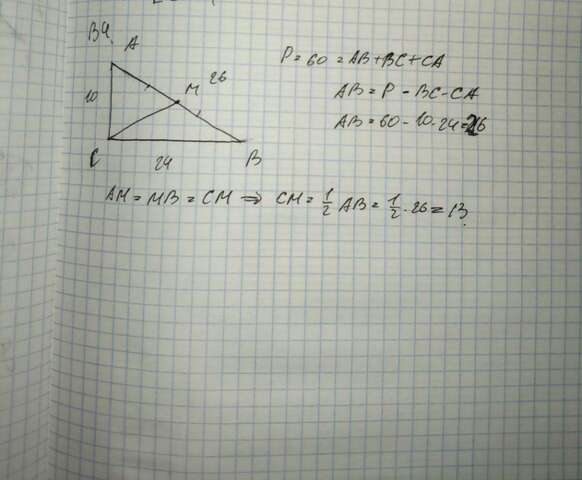 В4.
A
M 26
10
C 24 B
P = 60 = AB + BC + CA
AB = P - BC - CA
AB = 60 - 10 - 24 = 26
AM = MB = CM ⇒ CM = 1/2 AB = 1/2 · 26 = 13.